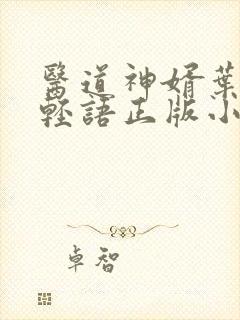 醫道神婿葉
輕語正版小
卓智